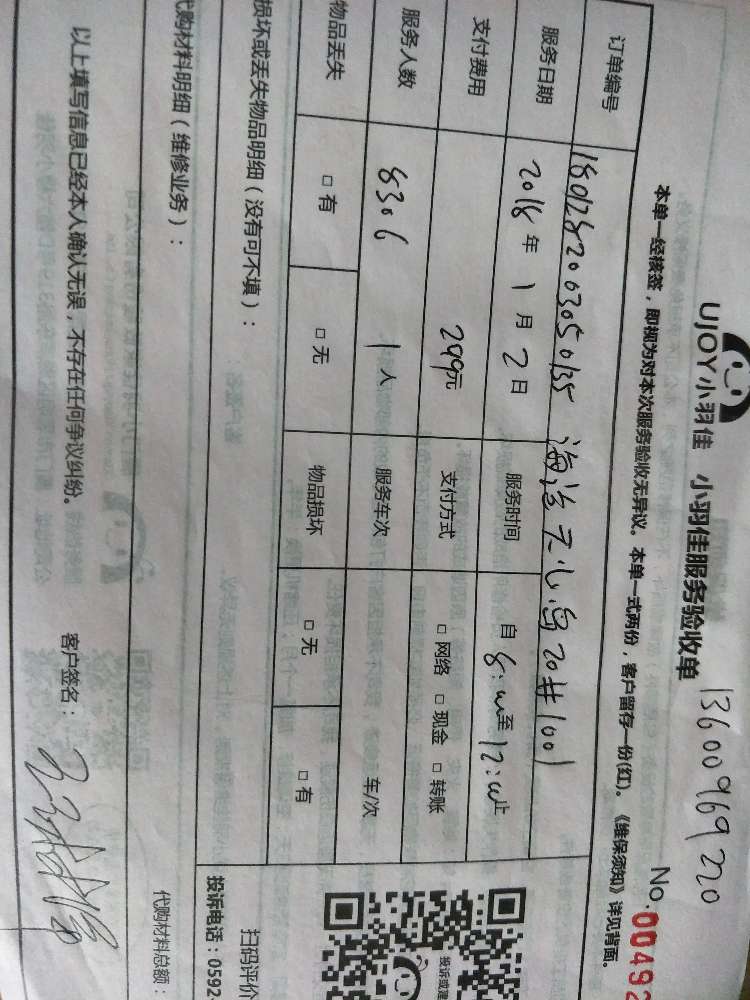 UJOY小羽佳 小羽佳服务验收单
13600969220
No.00492
本单一经核签，即视为对本次服务验收无异议。本单一式两份，客户留存一份(红)。《维保须知》详见背面。
订单编号 1801282003050135 海沧天心岛20#1001
服务日期 2018年1月2日 服务时间 自8:00至12:00止
支付费用 299元 支付方式 □网络 □现金 □转账
服务人数 8306 1人 服务车次 车/次
物品丢失 □有 □无 物品损坏 □无 □有
损坏或丢失物品明细（没有可不填）：
扫码评价
投诉或建
投诉电话：0592
代购材料明细（维修业务）：
代购材料总额：
以上填写信息已经本人确认无误，不存在任何争议纠纷。 客户签名：